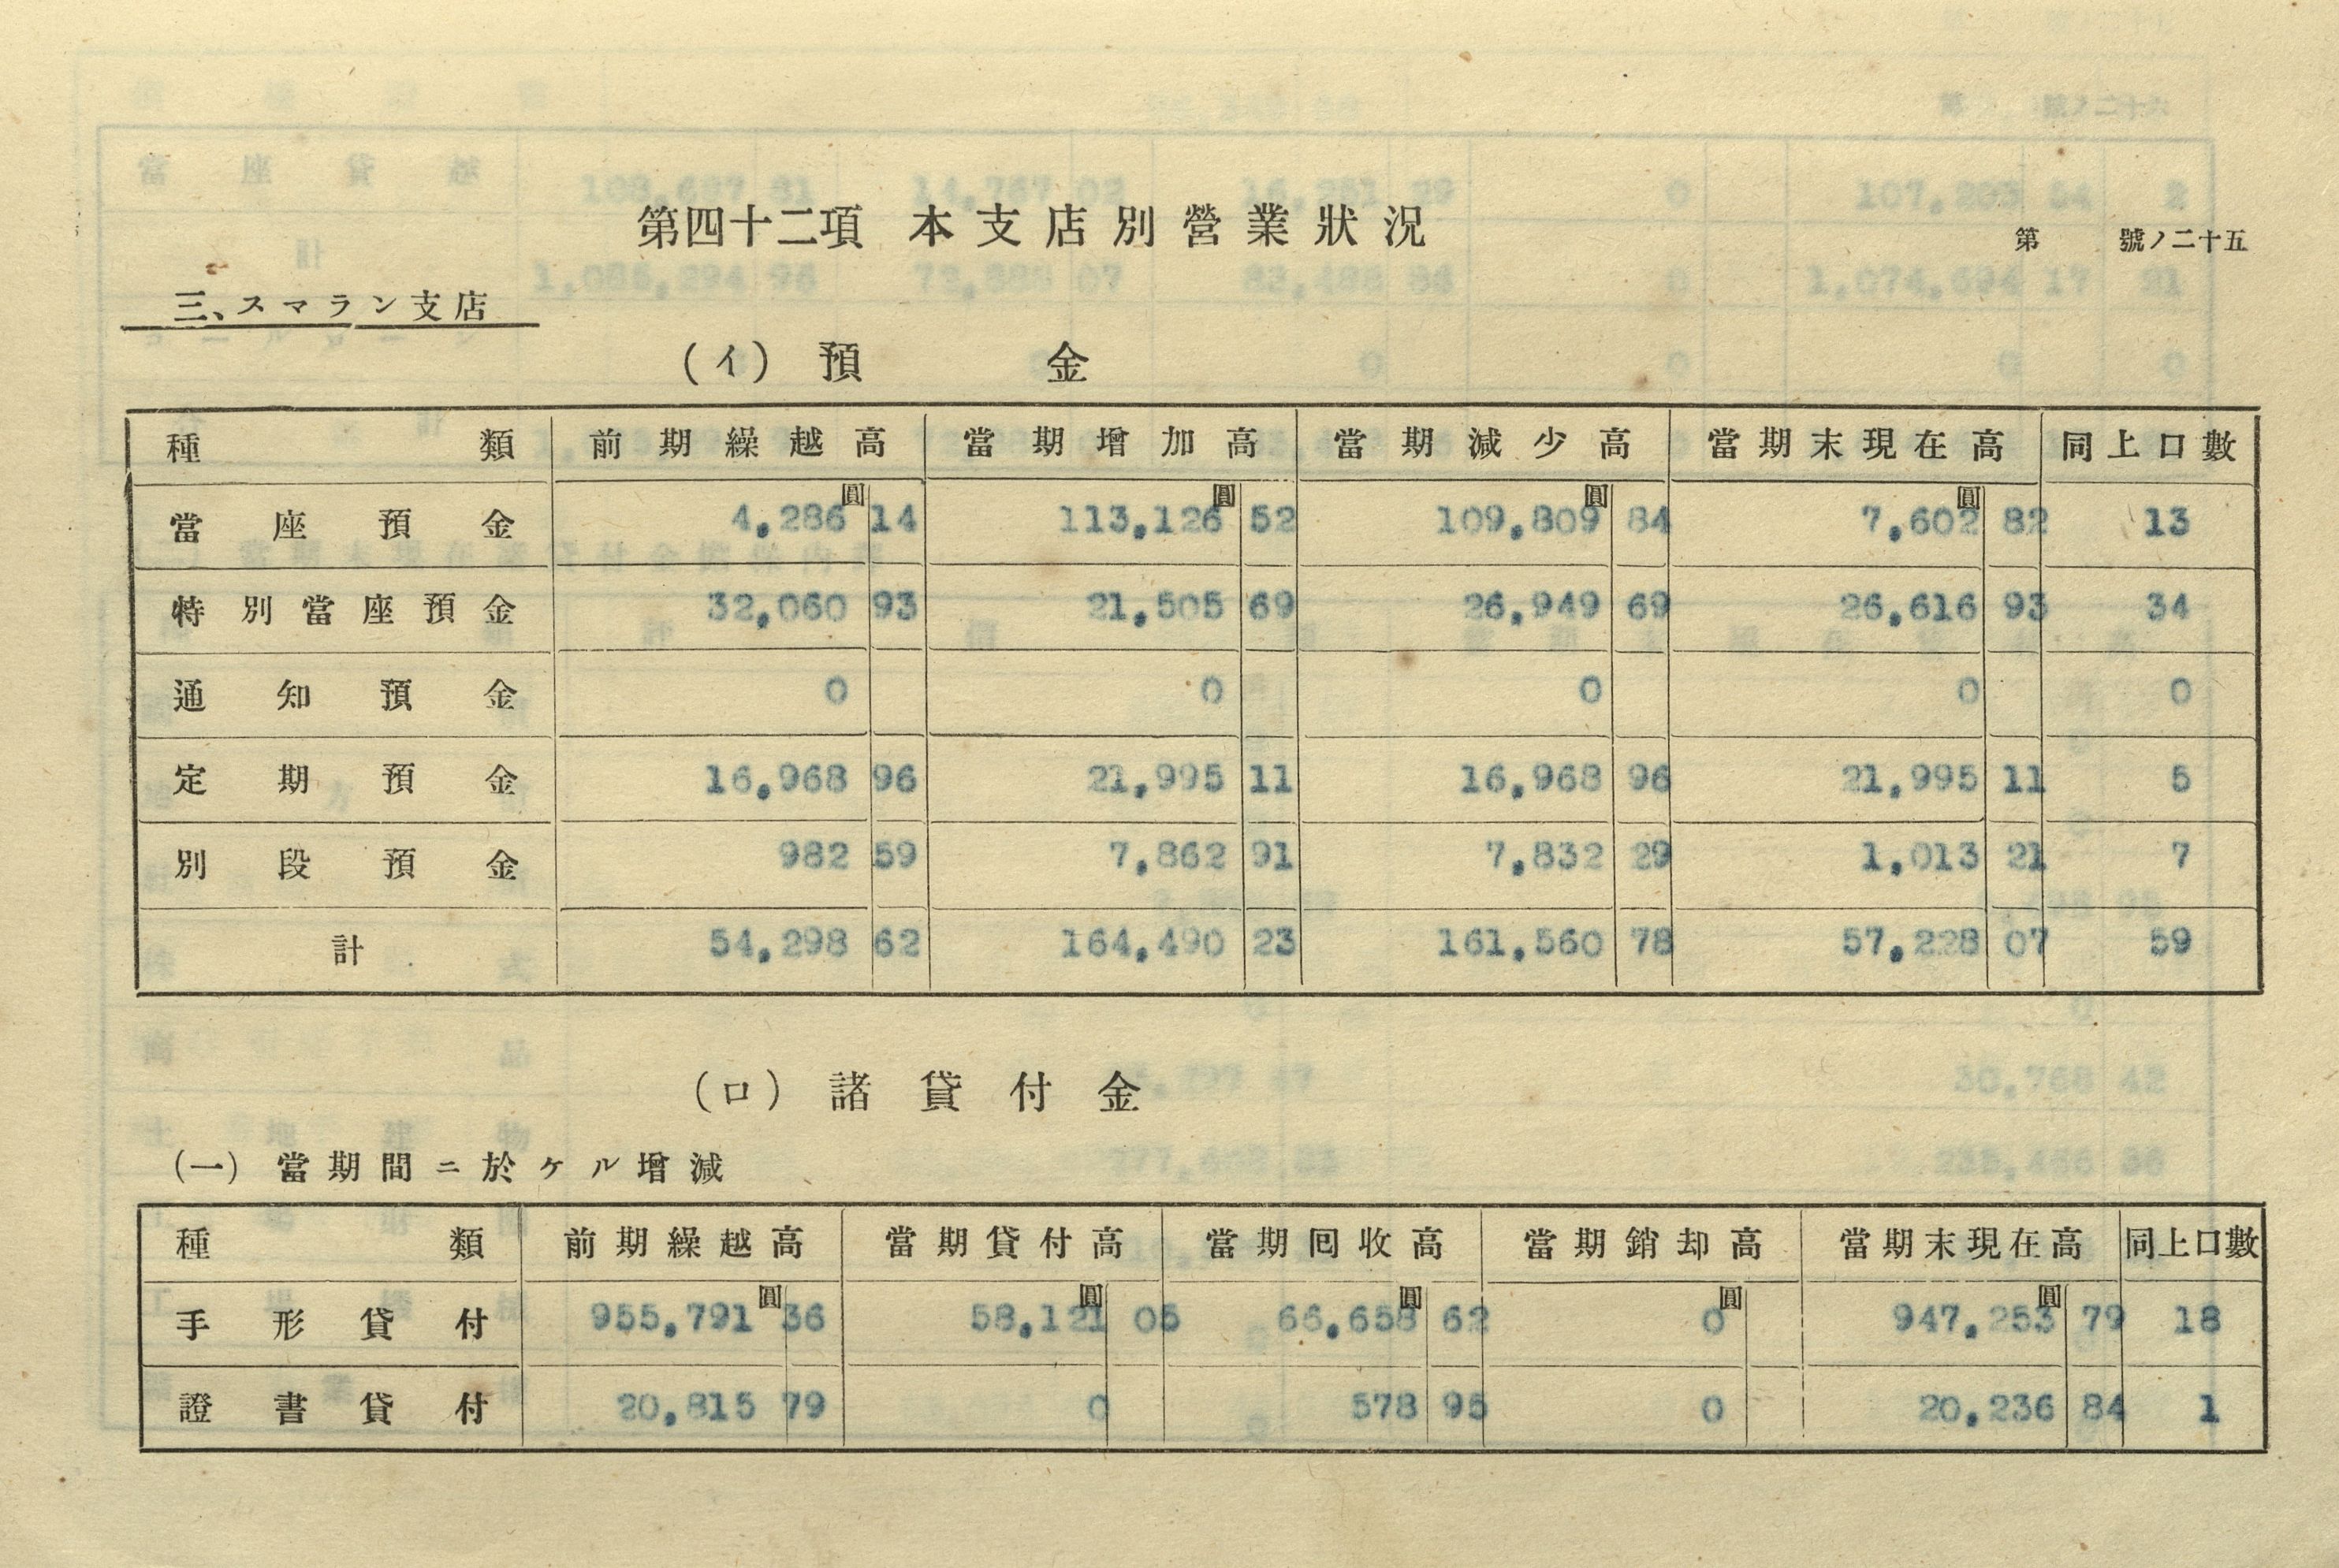 第四十二項 本支店別營業狀況
第 號ノ二十五
三、スマラン支店
(イ) 預金
種類 前期繰越高 當期增加高 當期減少高 當期末現在高 同上口數
圓 圓 圓 圓
當座預金 4,286 14 113,126 52 109,809 84 7,602 82 13
特別當座預金 32,060 93 21,505 69 26,949 69 26,616 93 34
通知預金 0 0 0 0 0
定期預金 16,968 96 21,995 11 16,968 96 21,995 11 5
別段預金 982 59 7,862 91 7,832 29 1,013 21 7
計 54,298 62 164,490 23 161,560 78 57,228 07 59
(ロ) 諸貸付金
(一) 當期間ニ於ケル增減
種類 前期繰越高 當期貸付高 當期囘收高 當期銷却高 當期末現在高 同上口數
圓 圓 圓 圓 圓
手形貸付 955,791 36 58,121 05 66,658 62 0 947,253 79 18
證書貸付 20,815 79 0 578 95 0 20,236 84 1